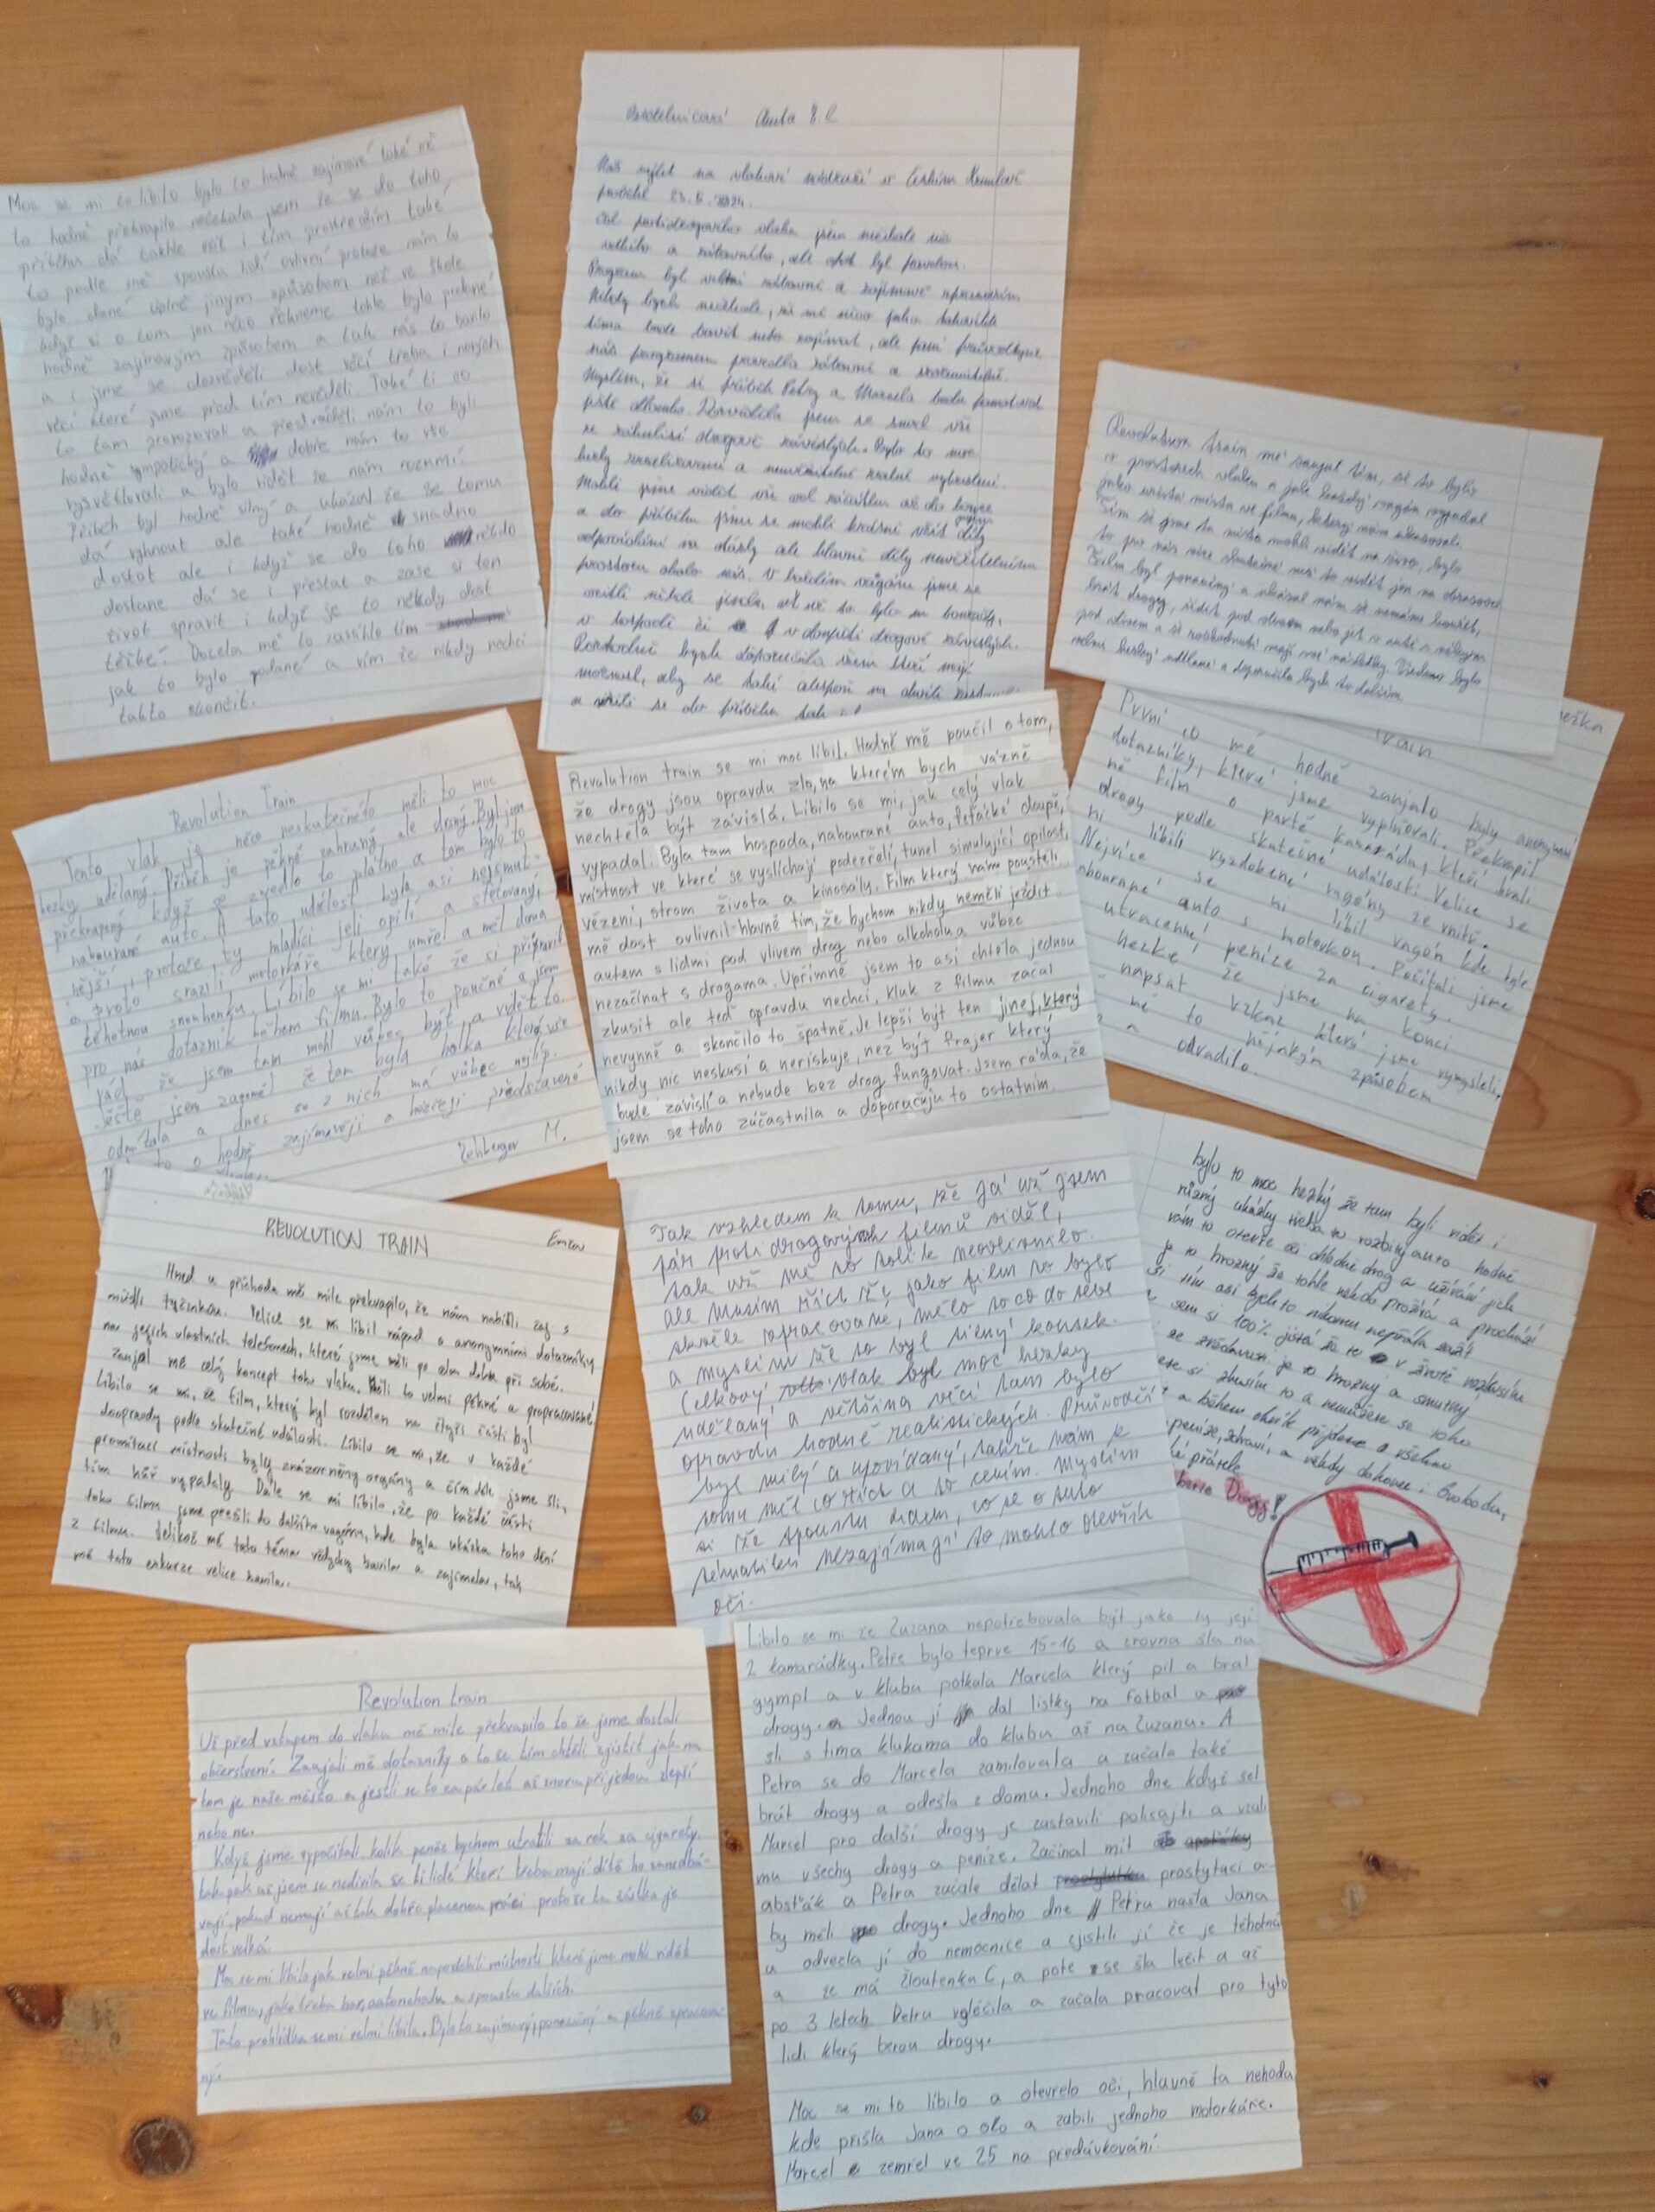 Moc se mi to líbilo bylo to hodně zajímavé také mě
to hodně překvapilo nečekala jsem že se do toho
příběhu dá takhle vžít i tím prostředím také
to podle mě spoustu lidí ovlivní protože nám to
bylo dané úplně jiným způsobem než ve škole
když si o tom jen něco řekneme tohle bylo podané
hodně zajímavým způsobem a tak nás to bavilo
a i jsme se dozvěděli dost věcí třeba i nových
věcí které jsme před tím nevěděli. Také ti co
to tam provozovali a přestavěli nám to byli
hodně sympatický a dobře nám to vše
vysvětlovali a bylo vidět že nám rozumí.
Příběh byl hodně silný a ukázal že se tomu
dá vyhnout ale také hodně snadno
dostat ale i když se do toho někdo
dostane dá se i přestat a zase si ten
život spravit i když je to někdy dost
těžké. Docela mě to zasáhlo tím
jak to bylo podané a vím že nikdy nechci
takto skončit.
Náš výlet na vlakové nádraží v Českém Krumlově
proběhl 23. 5. 2024.
Od protidrogového vlaku jsem nečekala nic
velkého a zábavného, ale opak byl pravdou.
Program byl velmi zábavně a zajímavě
Nikdy bych nečekala, že mě něco jako takovéhle
téma bude bavit nebo zajímat, ale paní průvodkyně
nás programem provedla zábavně a srozumitelně.
Myslím, že si příběh Petry a Marcela budu pamatovat
ještě dlouho. Dozvěděla jsem se snad vše
ze zákulisí drogově závislých. Bylo to moc
hezky zrealizované a neuvěřitelně reálně vykreslené.
Mohli jsme vidět vše od začátku až do konce
a do příběhu jsme se mohli krásně vžít díky
odpovídání na otázky ale hlavně díky neuvěřitelnému
prostoru okolo nás. V každém vagónu jsme se
ocitli někde jinde, ať už to bylo na
v hospodě či v doupěti drogově závislých.
Rozhodně bych doporučila všem kteří mají
možnost, aby se také alespoň na chvíli
a vžili se do příběhu tak
Revolution train mě zaujal tím, že to bylo
v prostorech vlaku a jak každý vagón vypadal
jako určitá místa ve filmu, který nám ukazovali.
Tím že jsme ta místa mohli vidět na živo, bylo
to pro nás více skutečné než to vidět jen na obrazovce
Film byl poučený a ukázal nám že nemáme kouřit,
brát drogy, řídit pod vlivem nebo jet v autě s někým
pod vlivem a že rozhodnutí mají své následky. Všechno bylo
velmi hezky udělané a doporučila bych to dalším.
Revolution Train
Tento vlak je něco neskutečného měli to moc
hezky udělaný. Příběh je pěkně zahraný, ale drsný. Byl jsem
překvapený když se zvedlo to plátno a tam bylo to
nabourané auto. A tato událost byla asi nejsmut-
nější, protože ty mladíci jeli opilí a sfetovaný,
a proto srazili motorkáře který umřel a měl doma
těhotnou snoubenku. Líbilo se mi také že si připravili
pro nás dotazník během filmu. Bylo to poučné a jsem
rád, že jsem tam mohl vůbec být a vidět to.
Ještě jsem zapoměl že tam byla holka která vše
odmítala a dnes se z nich má vůbec nejlíp.
to o hodně zajímavěji a hezčeji představené
Revolution train se mi moc líbil. Hodně mě poučil o tom,
že drogy jsou opravdu zlo, na kterém bych vážně
nechtěla být závislá. Líbilo se mi, jak celý vlak
vypadal. Byla tam hospoda, nabourané auto, feťácké doupě,
místnost ve které se vyslíchají podezřelí, tunel simulující opilost,
vězení, strom života a kinosály. Film který nám pouštěli
mě dost ovlivnil hlavně tím, že bychom nikdy neměli jezdit
autem s lidmi pod vlivem drog nebo alkoholu a vůbec
nezačínat s drogama. Upřímně jsem to asi chtěla jednou
zkusit ale teď opravdu nechci, kluk z filmu začal
nevynně a skončilo to špatně. Je lepší být ten jinej, který
nikdy nic neskusí a neriskuje, než být frajer který
bude závislí a nebude bez drog fungovat. Jsem ráda, že
jsem se toho zúčastnila a doporučuju to ostatním.
První co mě hodně zaujalo byly anonymní
dotazníky, které jsme vyplňovali. Překvapil
mě film o partě kamarádů, kteří brali
drogy podle skutečné události. Velice se
mi líbili vyzdobené vagóny ze vnitř.
Nejvíce se mi líbil vagón kde byle
nabourané auto s motorkou. Počítali jsme
utracenné peníze za cigarety.
hezké že jsme na konci
napsat vzkaz který jsme vymysleli.
mě to nějakým způsobem
odradilo.
REVOLUTION TRAIN
Hned u příchodu mě mile překvapilo, že nám nabídli čaj s
müsli tyčinkou. Velice se mi líbil nápad s anonymními dotazníky
na jejich vlastních telefonech, které jsme měli po celou dobu při sobě.
Zaujal mě celý koncept toho vlaku. Měli to velmi pěkné a propracované.
Líbilo se mi, že film, který byl rozdělen na čtyři části byl
doopravdy podle skutečné události. Líbilo se mi, že v každé
promítací místnosti byly znázorněny orgány a čím dál jsme šli,
tím hůř vypadaly. Dále se mi líbilo, že po každé části
toho filmu jsme prošli do dalšího vagónu, kde byla ukázka toho dění
z filmu. Jelikož mě tato téma vždycky bavila a zajímala, tak
mě tato exkurze velice bavila.
Tak vzhledem k tomu, že já už jsem
pár protidrogových filmů viděl,
tak už mě to tolik neovlivnilo.
Ale musím říct že jako film to bylo
skvěle zpracované, mělo to co do sebe
a myslím že to byl silný kousek.
Celkový, vlak byl moc hezky
udělaný a většina věcí tam bylo
opravdu hodně realistických. Průvodčí
byl milý a upovídaný, takže nám k
tomu měl co říct a to cením. Myslím
si že spoustu lidem, co se o tuto
tématiku nezajímají to mohlo otevřít
oči.
bylo to moc hezký že tam byli vidět i
různý ukázky třeba to rozbitý auto hodně
vám to otevře oči ohledně drog a užívání jich
je to hrozný že tohle někdo prožívá a prochází
si tím asi bych to nikomu nepřála zažít
sem si 100% jistá že to v životě nezkusím
je to hrozný a smutný
si zkusím to a nemůžete se toho
a během chvíle přijdete o všechno
peníze, zdraví, a někdy dokonce i svobodu,
přátele
berte Drogy!
Revolution train
Už před vstupem do vlaku mě mile překvapilo to že jsme dostali
občerstvení. Zaujali mě dotazníky a to že tím chtěli zjistit jak na
tom je naše město a jestli se to za pár let až znovu přijedou zlepší
nebo ne.
Když jsme vypočítali kolik peněz bychom utratili za rok za cigarety
tak pak už jsem se nedivila že ti lidé kteří třeba mají dítě ho zanedbá-
vají, pokud nemají až tak dobře placenou práci protože ta částka je
dost velká.
Moc se mi líbilo jak velmi pěkně napodobili místnosti které jsme mohli vidět
ve filmu, jako třeba bar, autonehodu a spoustu dalších.
Tato prohlídka se mi velmi líbila. Bylo to zajímavý, poneučný a pěkně zpracova-
ný.
Líbilo se mi že Zuzana nepotřebovala být jako ty její
2 kamarádky. Petře bylo teprve 15-16 a zrovna šla na
gympl a v klubu potkala Marcela který pil a bral
drogy. Jednou jí dal lístky na fotbal a
šli s tima klukama do klubu až na Zuzanu. A
Petra se do Marcela zamilovala a začala také
brát drogy a odešla z domu. Jednoho dne když šel
Marcel pro další drogy je zastavili policajti a vzali
mu všechy drogy a peníze. Začínal mít
abstťák a Petra začale dělat prostytuci a-
by měli drogy. Jednoho dne Petru našla Jana
a odvezla jí do nemocnice a zjistili jí že je těhotná
a že má žloutenku C, a poté se šla léčit a až
po 3 letech Petra vyléčila a začala pracovat pro tyto
lidi který berou drogy.
Moc se mi to líbilo a otevřelo oči, hlavně ta nehoda
kde přišla Jana o oko a zabili jednoho motorkáře.
Marcel zemřel ve 25 na předávkování.